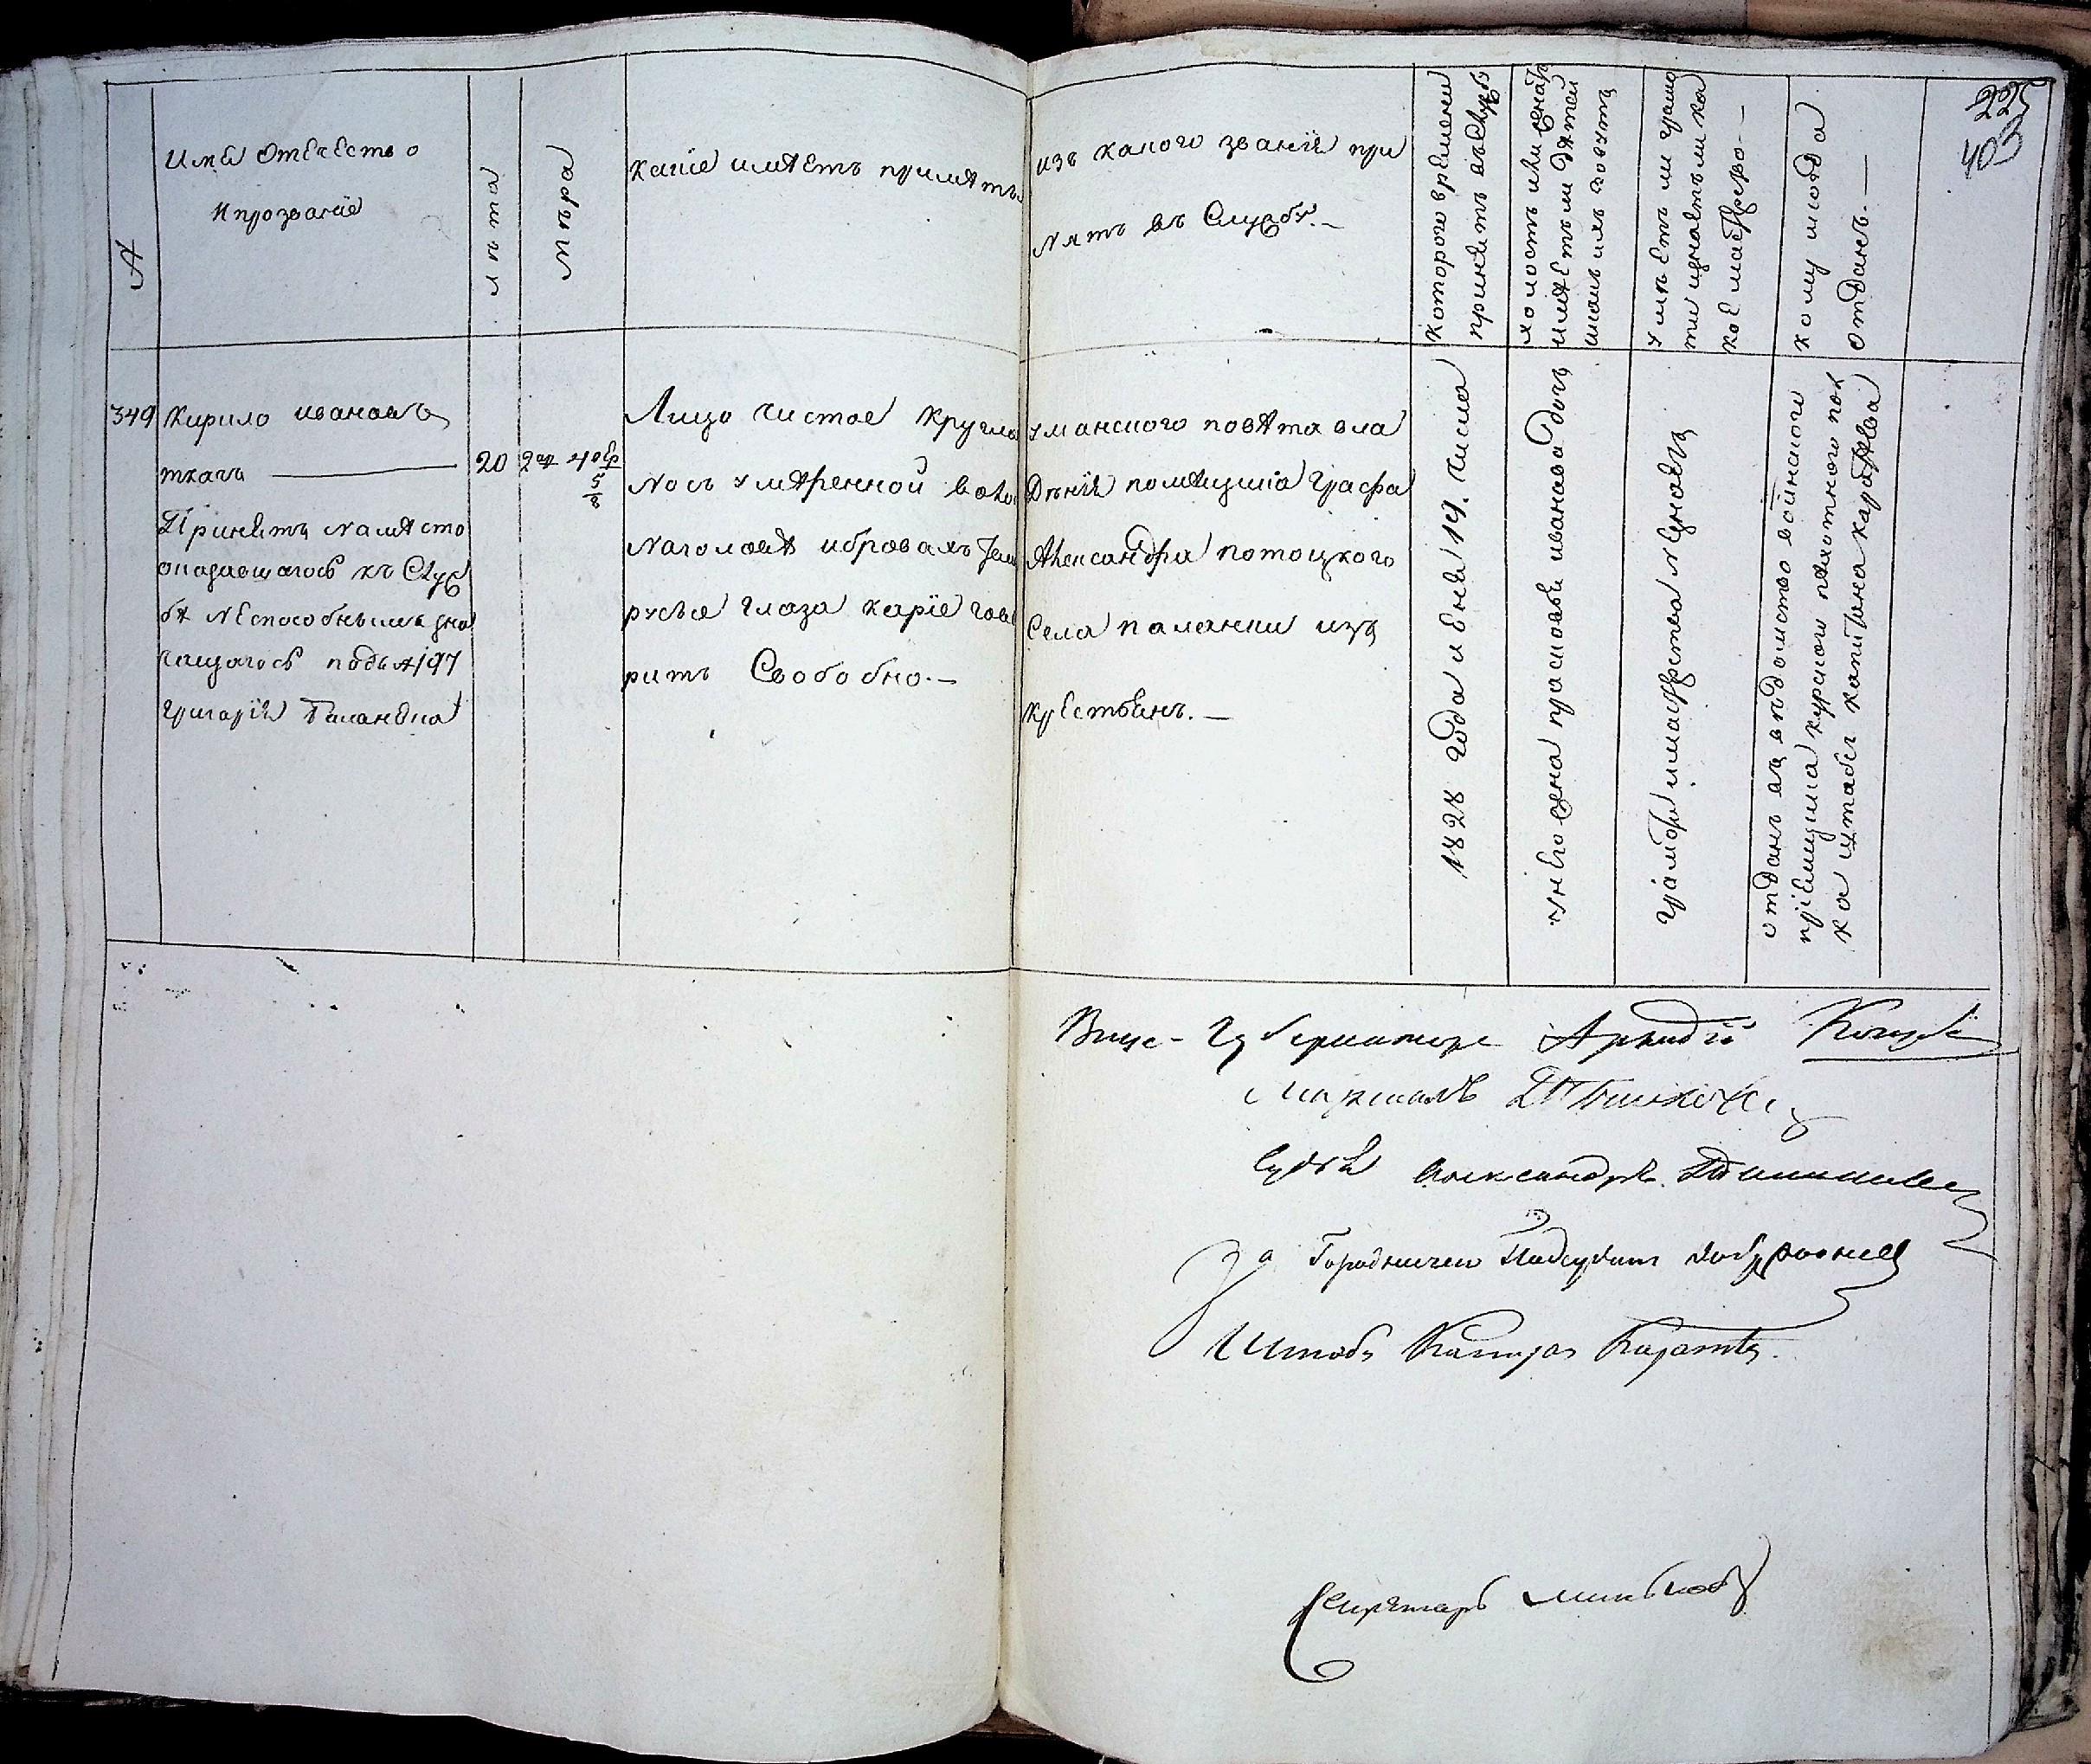 225
403
№
Имя Отечество
И прозвание
лѣта
мѣра
какіе имѣетъ примѣты
изъ какого званія при
нятъ въ Службу.—
Которого времени
принятъ въ службу
холостъ или женатъ
имѣетъ ли дѣтей
и какъ ихъ зовутъ
умѣетъ ли грамо
ти и знаетъ ли ка
кое мастерство.—
кому и когда
отданъ.—
349
Кирило ивановъ
ткачъ —
Принятъ на мѣсто
оказавшагось къ Служ
бѣ неспособнымъ зна
чащагось подъ № 197
Григорія
20
2 ар 4 вер
5/8
Лицо чистое кругло
Носъ умѣренной воло
На головѣ и бровахъ темн
русые глаза каріе гово
ритъ Свободно.—
уманского повѣта вла
Дѣнія помѣщика графа
Александра потоцкого
Села паланки изъ
крестьянъ.—
1828 года июня 19. числа
у него жена прасковья иванова дочь
грамоти и мастерства не знаетъ
отданъ въ вѣдомство воинского
пріемщика курского пѣхотного пол
ка штабсъ капитана каратѣева
Вице-Губернаторъ Аркадій
Маршалъ
Судья Александръ
За Городничего Подсудокъ
Штабсъ Капитанъ Каратѣевъ.
Секретарь